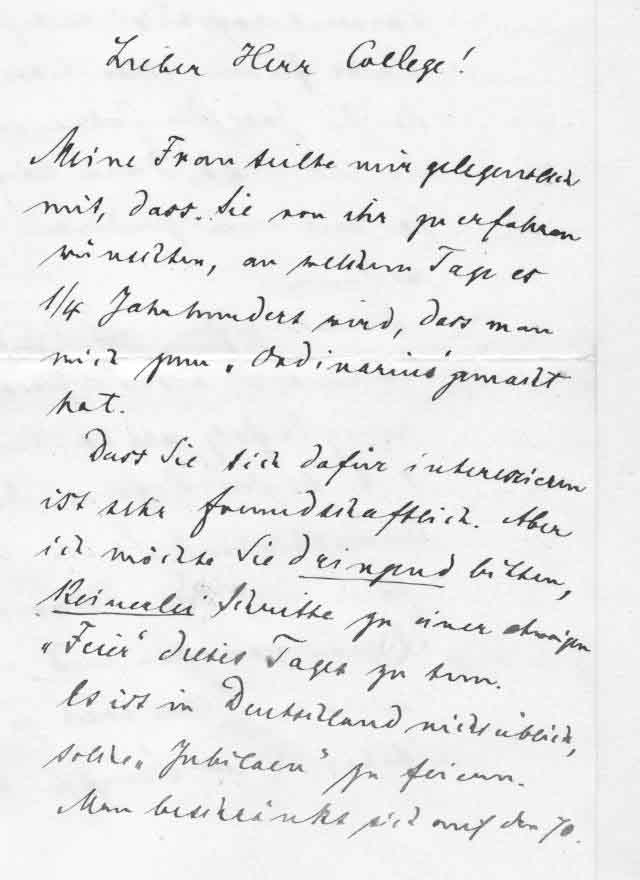 Lieber Herr College!
Meine Frau teilte mir gelegentlich
mit, dass Sie von ihr zu erfahren
wünschten, an welchem Tage es
1/4 Jahrhundert wird, dass man
mich zum „Ordinarius" gemacht
hat.
Dass Sie sich dafür interessieren
ist sehr freundschaftlich. Aber
ich möchte Sie dringend bitten,
keinerlei Schritte zu einer etwaigen
„Feier" dieses Tages zu tun.
Es ist in Deutschland nicht üblich,
solche „Jubilaen" zu feiern.
Man beschränkt sich auf den 70.